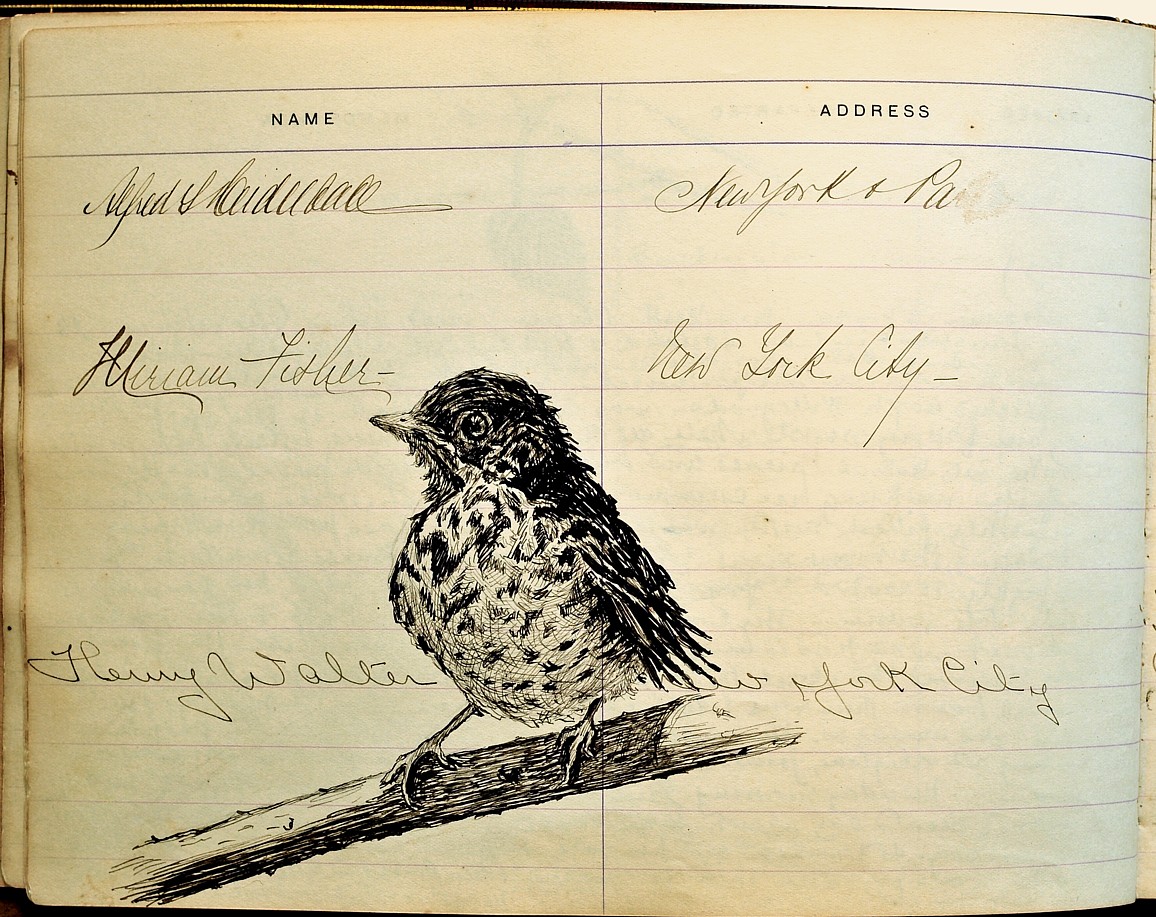 NAME ADDRESS
Alfred S New York & Pa
Miriam Fisher - New York City -
Henry Walter York City